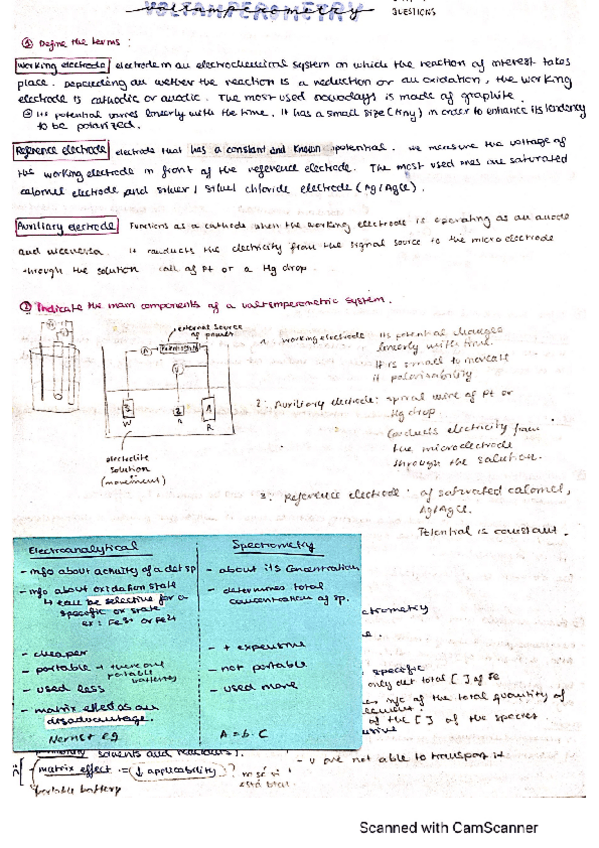 VOLTAMPEROMETRY
QUESTIONS
① Define the terms:
Working electrode electrode in an electrochemical system on which the reaction of interest takes
place. Depending on wether the reaction is a reduction or an oxidation, the working
electrode is cathodic or anodic. The most used nowadays is made of graphite.
its potential varies linearly with the time. it has a small size (tiny) in order to enhance its tendency
to be polarized.
Reference electrode electrode that has a constant and known potential. we measure the voltage of
the working electrode in front of the reference electrode. The most used ones are saturated
calomel electrode and silver / silver chloride electrode (Ag/AgCl).
Auxiliary electrode Functions as a cathode when the working electrode is operating as an anode
and viceversa. it conducts the electricity from the signal source to the microelectrode
through the solution. coil of Pt or a Hg drop.
② Indicate the main components of a voltamperometric system.
external source
of power
A
V
W
R
electrolite
solution
(movement)
1. working electrode its potential changes
linearly with time.
It is small to increase
it polarisability
2: Auxiliary electrode: spiral wire of Pt or
Hg drop
Conducts electricity from
the microelectrode
through the solution.
3: Reference electrode: of saturated calomel,
Ag/AgCl.
Potential is constant.
Electroanalytical
- info about activity of a det sp
- info about oxidation state
↳ can be selective for a
specific ox state
ex: Fe3+ or Fe2+
- cheaper
- portable → there are
portable
batteries
- used less
- matrix effect as an
disadvantage.
Nernst eq.
Spectrometry
- about its concentration
- determines total
concentration of sp.
- + expensive
- not portable
- used more
A = b · C
ctrometry
specific
only det total [ ] of Fe
of the total quantity of
of the [ ] of the species
solvents and
matrix effect = (↓ applicability)?
portable battery
- u are not able to transport it
Scanned with CamScanner